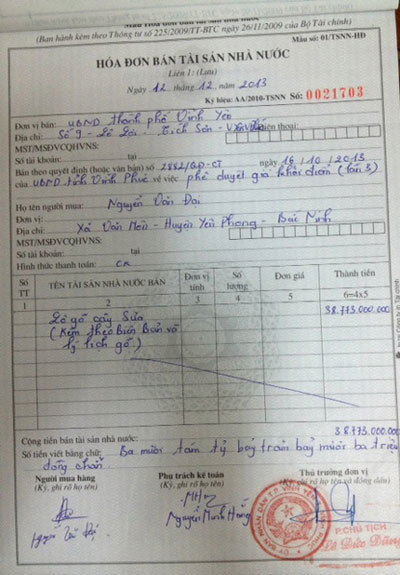 (Ban hành kèm theo Thông tư số 225/2009/TT-BTC ngày 26/11/2009 của Bộ Tài chính)
Mẫu số: 01/TSNN-HĐ
HÓA ĐƠN BÁN TÀI SẢN NHÀ NƯỚC
Liên 1: (Lưu)
Ngày 12 tháng 12 năm 2013
Ký hiệu: AA/2010-TSNN Số: 0021703
Đơn vị bán: UBND thành phố Vĩnh Yên
Địa chỉ: Số 9 - Lê Lợi - Tích Sơn - Điện thoại:
MST/MSĐVCQHVNS:
Số tài khoản: tại
Bán theo quyết định (hoặc văn bản) số 2882/QĐ-CT ngày 16/10/2013
của UBND tỉnh Vĩnh Phúc về việc phê duyệt giá khởi điểm (lần 3)
Họ tên người mua: Nguyễn Văn Đại
Đơn vị:
Địa chỉ: Xã Văn Môn - Huyện Yên Phong - Bắc Ninh
MST/MSĐVCQHVNS:
Số tài khoản: tại
Hình thức thanh toán: CK
Số TT TÊN TÀI SẢN NHÀ NƯỚC BÁN Đơn vị tính Số lượng Đơn giá Thành tiền
1 2 3 4 5 6=4x5
Lô gỗ cây Sưa 38.773.000.000
(Kèm theo Biên Bản và
lý lịch gỗ)
Cộng tiền bán tài sản nhà nước: 38.773.000.000
Số tiền viết bằng chữ: Ba mươi tám tỷ bảy trăm bảy mươi ba triệu
đồng chẵn
Người mua hàng Phụ trách kế toán Thủ trưởng đơn vị
(Ký, ghi rõ họ tên) (Ký, ghi rõ họ tên) (Ký, ghi rõ họ tên và đóng dấu)
Nguyễn Minh Hằng
P.CHỦ TỊCH
Lê Đức Dũng